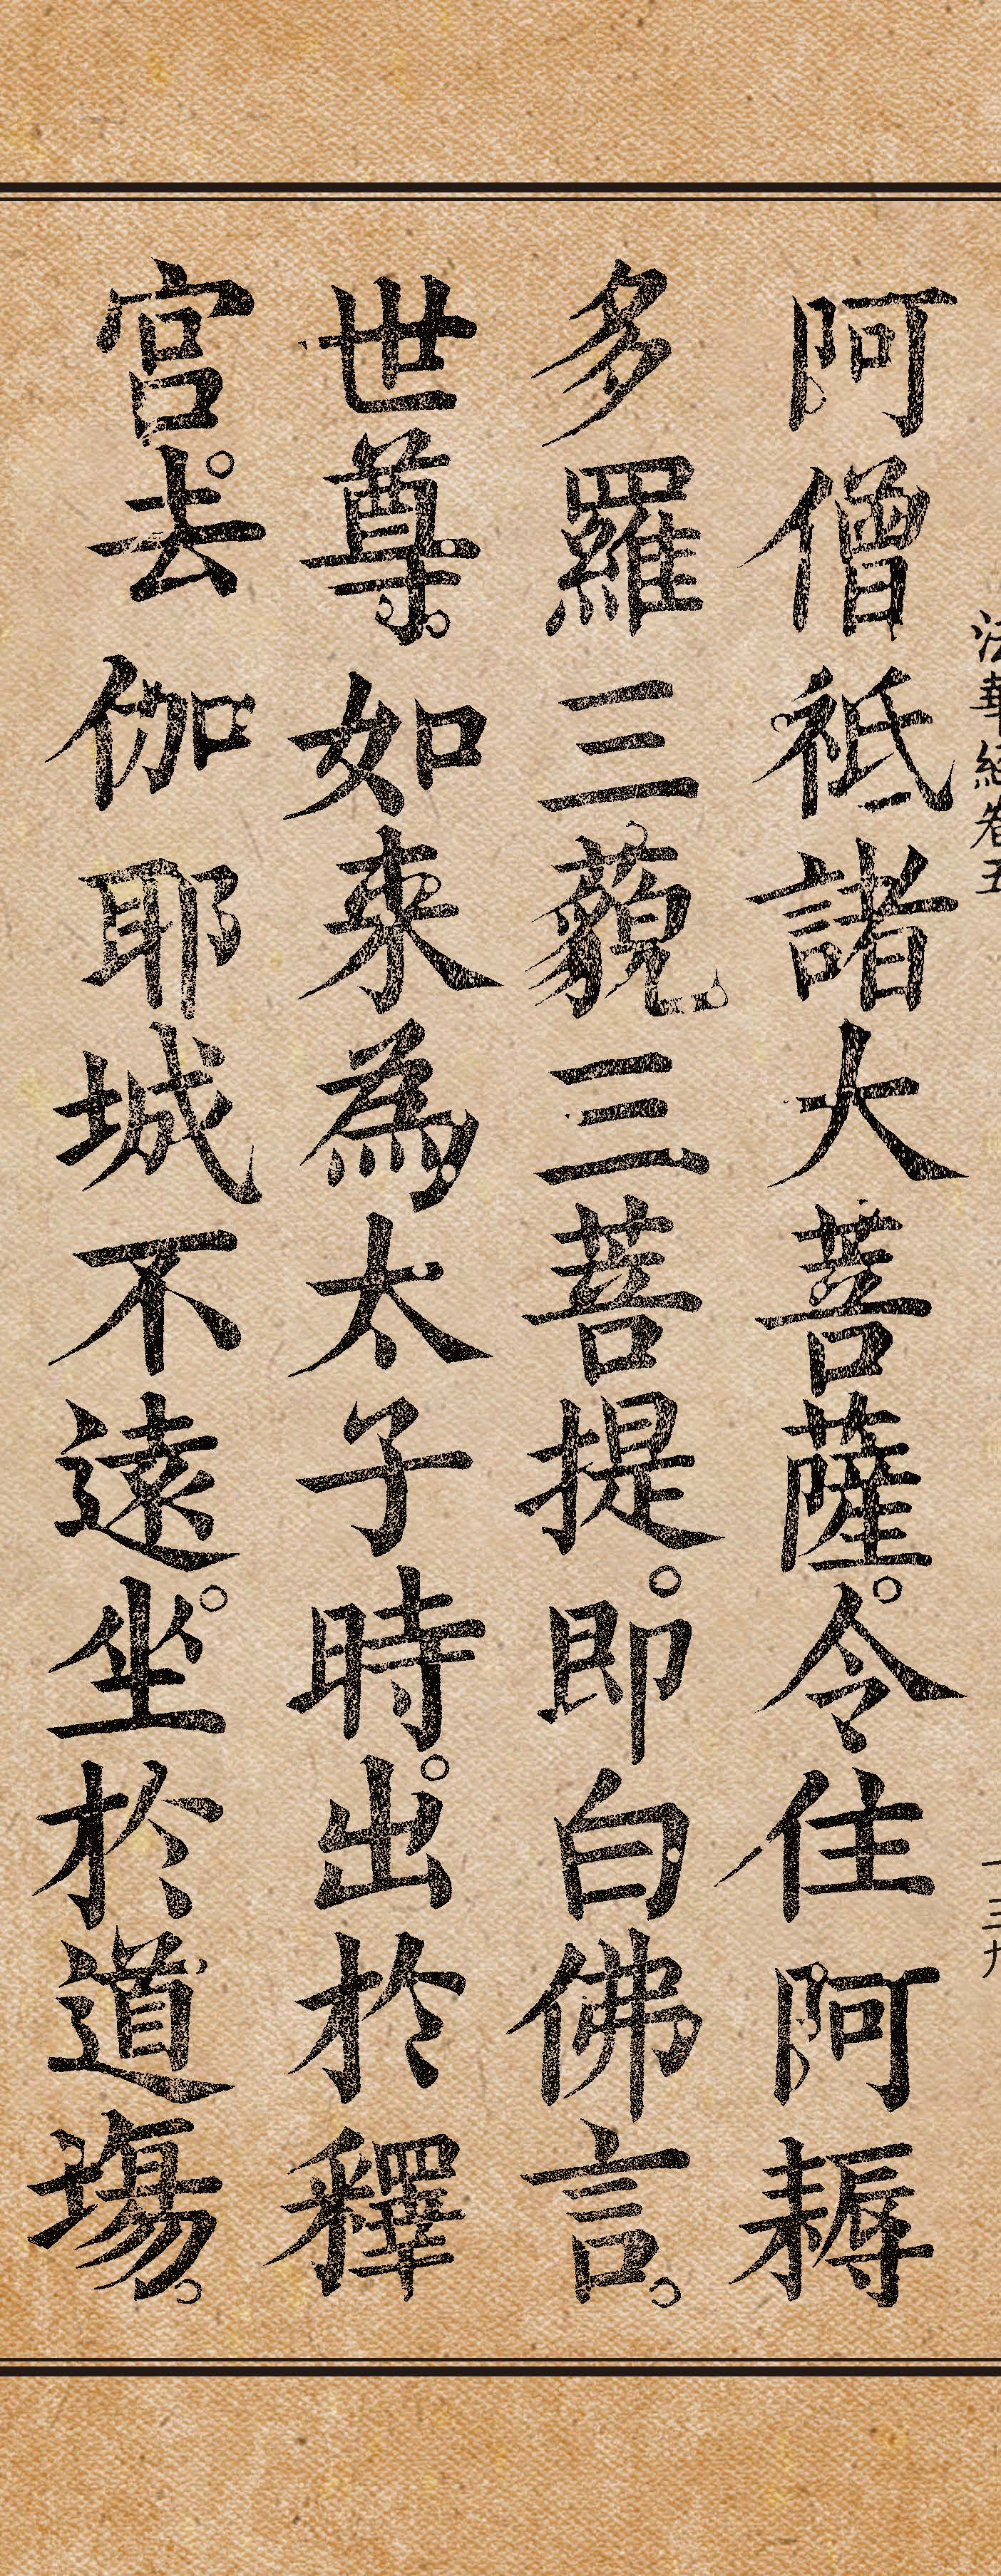 法華經卷五
一三九
阿僧祇諸大菩薩。令住阿耨
多羅三藐三菩提。即白佛言。
世尊。如來為太子時。出於釋
宮。去伽耶城不遠。坐於道場。